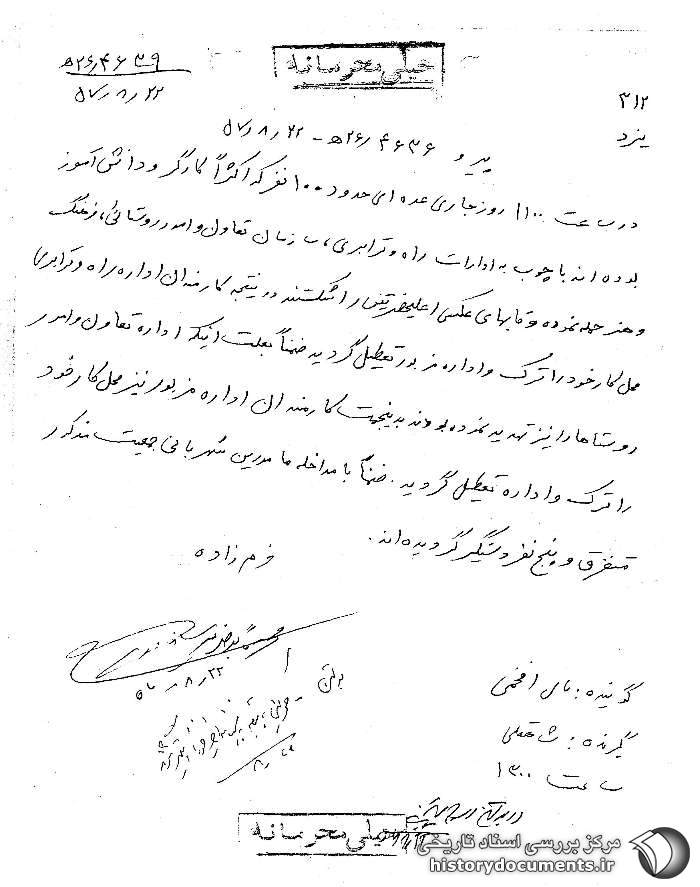 خیلی محرمانه
۲۶٫۴۶۳۹ﻫ
۵۷٫۸٫۲۲
۳۱۲
یزد
پیرو ۲۶٫۴۶۳۶ﻫ - ۵۷٫۸٫۲۲
در ساعت ۱۱۰۰ روز جاری عده ای حدود ۱۰۰ نفر که اکثراً کارگر و دانش آموز
بوده اند با چوب به ادارات راه و ترابری، سازمان تعاون و امور روستائی، فرهنگ
و هنر حمله نموده و قابهای عکس اعلیحضرتین را شکستند در نتیجه کارمندان اداره راه و ترابری
محل کار خود را ترک و اداره مزبور تعطیل گردید ضمناً بعلت اینکه اداره تعاون و امور
روستاها را نیز تهدید نموده بودند بدینجهت کارمندان اداره مزبور نیز محل کار خود
را ترک و اداره تعطیل گردید. ضمناً با مداخله مامورین شهربانی جمعیت مذکور
متفرق و پنج نفر دستگیر گردیده‌اند.
خرم زاده
۵۷٫۸٫۲۲
بولتن
گوینده:
گیرنده:
ساعت ۱۳۰۰
خیلی محرمانه
مرکز بررسی اسناد تاریخی
historydocuments.ir